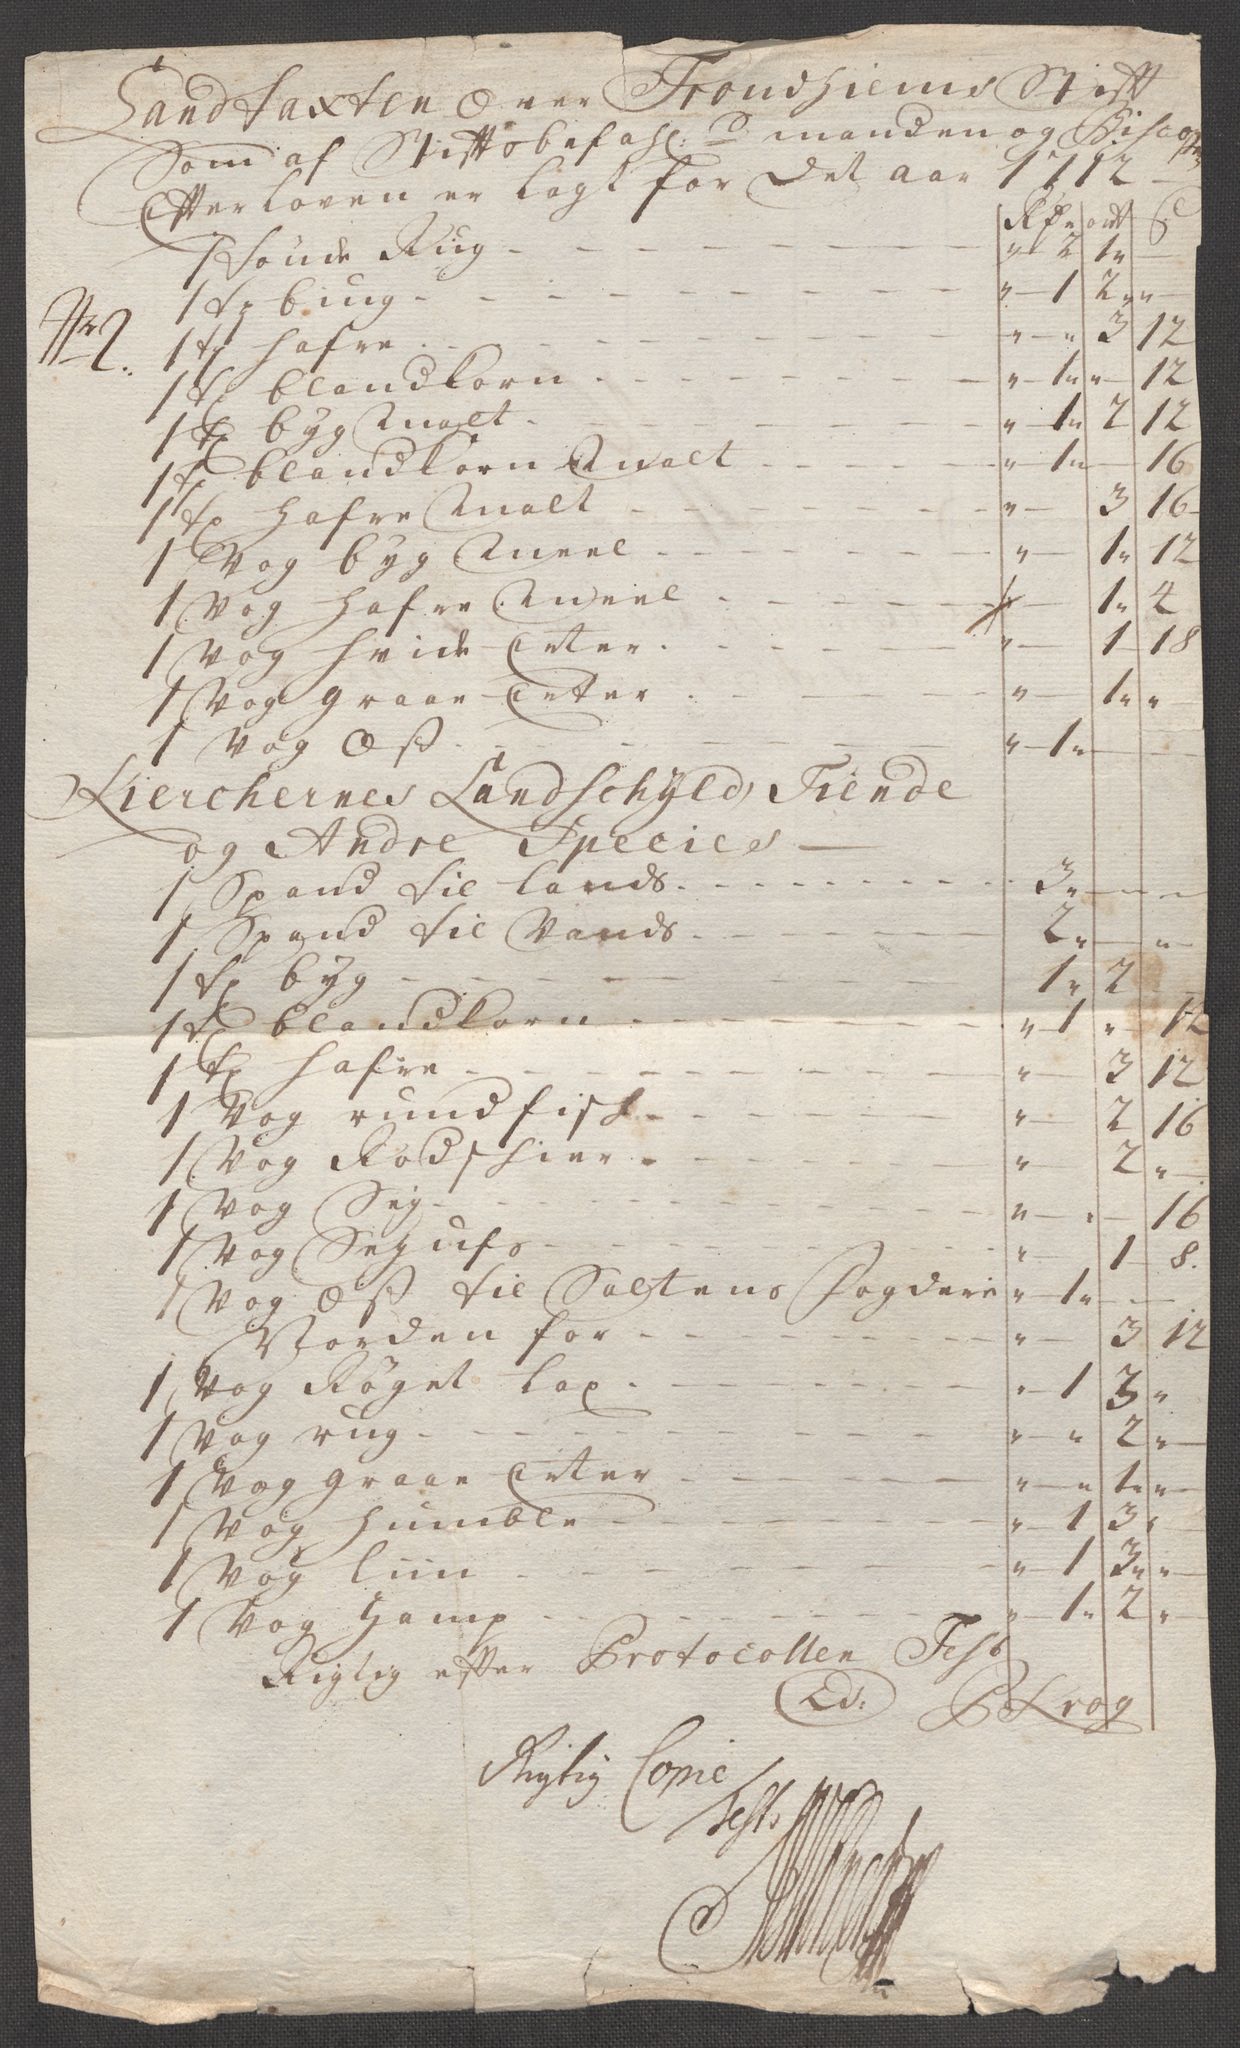 Landtaxten over Trondhiems Stift
Som af Stiftsbefahl: manden og Biscopen
Effter loven er lagt for det aar 1712
Rdr ort s
1 tønde Rug " 2 1 "
No 2.
1 tr bíug " 1 2 "
1 tr hafre " " 3 12
1 tr blandkorn " 1 " 12
1 tr byg Malt " 1 2 12
1 tr blandkorn Malt " 1 " 16
1 tr hafre Malt " 3 16
1 Vog byg Meel " 1 12
1 Vog hafre Meel " 1 4
1 Vog hvide Erter " 1 18
1 Vog graae Erter " 1 "
1 Vog Ost " 1 "
Kierchernes Landschyld, Tiende
og Andre Species
1 Spand til lands 3 "
1 Spand til Vands 2 " "
1 tr byg 1 2
1 tr blandkorn " 1 " 12
1 tr hafre " 3 12
1 Vog rundfisch " 2 16
1 Vog Rodschier " 2 "
1 Vog Sej " " 16
1 Vog Sejufs " 1 8.
1 Vog Ost til Saltens fogderie " 1 "
Norden for " 3 12
1 Vog Røget lax " 1 3 "
1 Vog rug " " 2 "
1 Vog graae Erter " " 1 "
1 Vog humble " 1 3 "
1 Vog liin " 1 3 "
1 Vog Hamp " 1 2 "
Rigtig efter Protocollen Test
LS: P Krog
Rigtig Copie
Test.